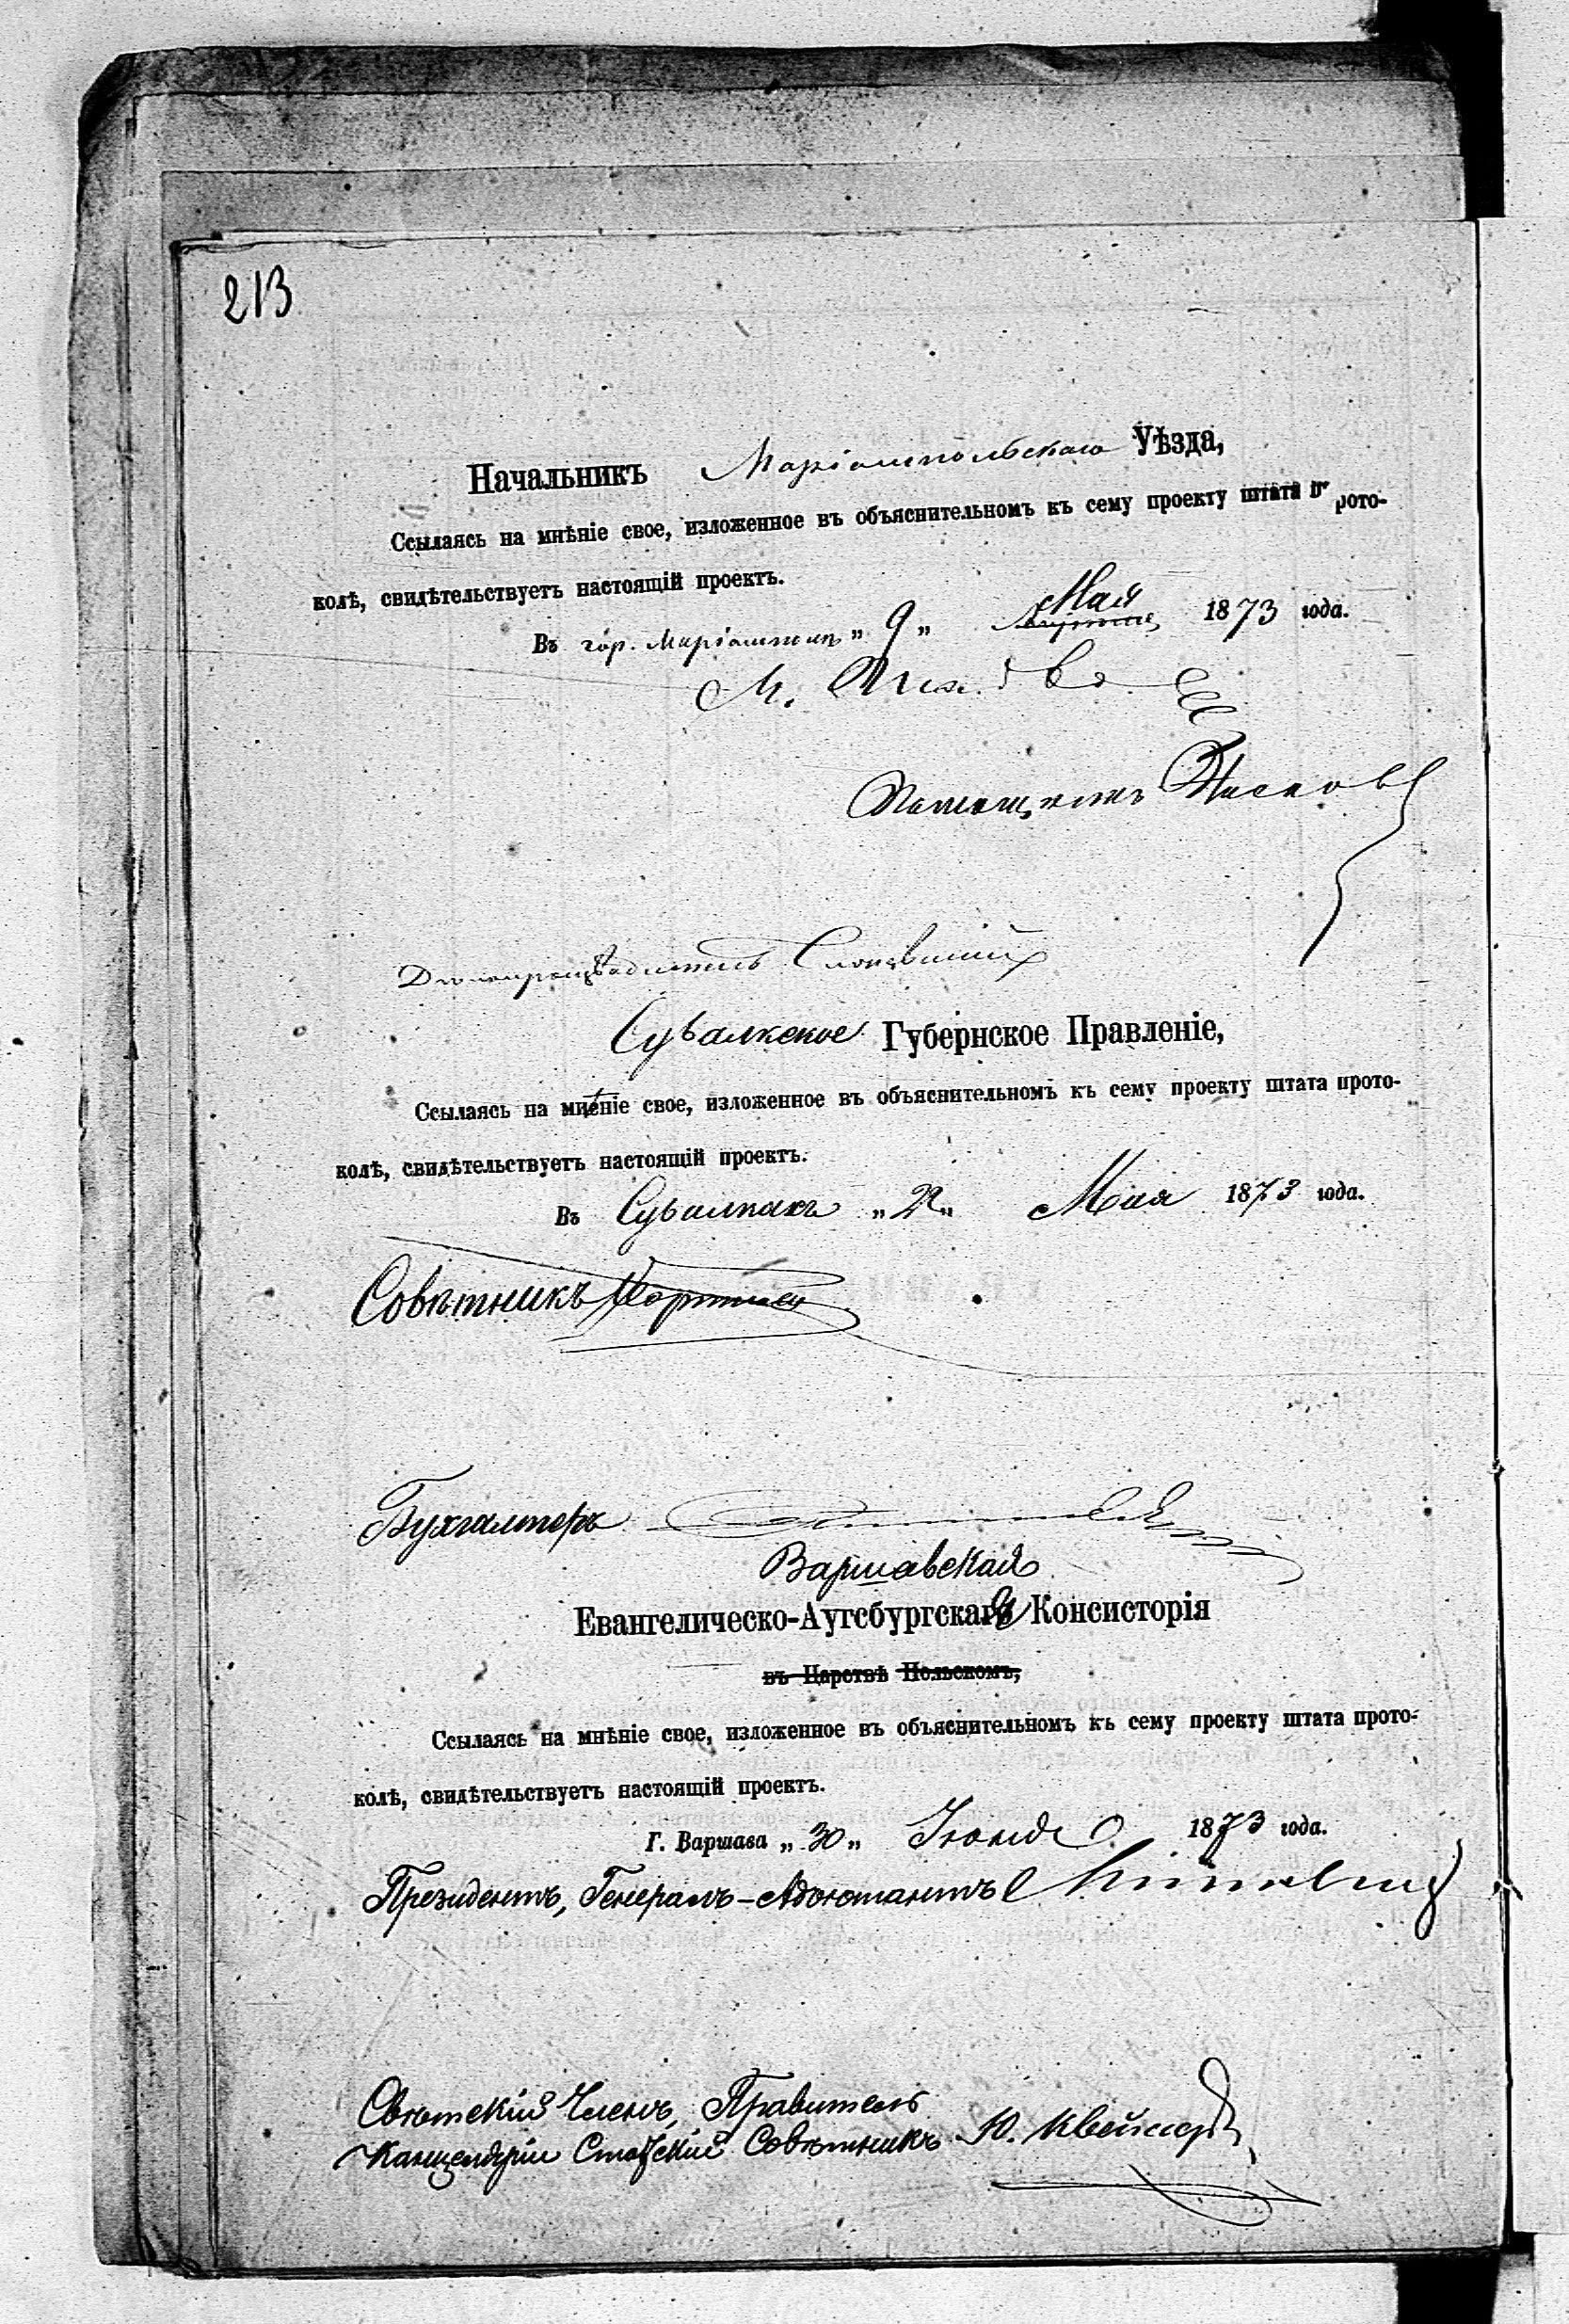 213
Начальникъ Маріампольскаго Уѣзда,
Ссылаясь на мнѣніе свое, изложенное въ объяснительномъ къ сему проекту штата прото-
колѣ, свидѣтельствуетъ настоящій проектъ.
Мая
Въ гор. Маріамполѣ „ 9 „ 1873 года.
М.
Помощникъ
Дѣлопроизводитель
Сувалкское Губернское Правленіе,
Ссылаясь на мнѣніе свое, изложенное въ объяснительномъ къ сему проекту штата прото-
колѣ, свидѣтельствуетъ настоящій проектъ.
Въ Сувалкахъ „ 22 „ Мая 1873 года.
Совѣтникъ
Бухгалтеръ
Варшавская
Евангелическо-Аугсбургская Консисторія
въ Царствѣ Польскомъ,
Ссылаясь на мнѣніе свое, изложенное въ объяснительномъ къ сему проекту штата прото-
колѣ, свидѣтельствуетъ настоящій проектъ.
Г. Варшава „ 30 „ Іюня 1873 года.
Президентъ, Генералъ-Адъютантъ
Свѣтскій Членъ, Правитель
Канцеляріи Статскій Совѣтникъ Ю.